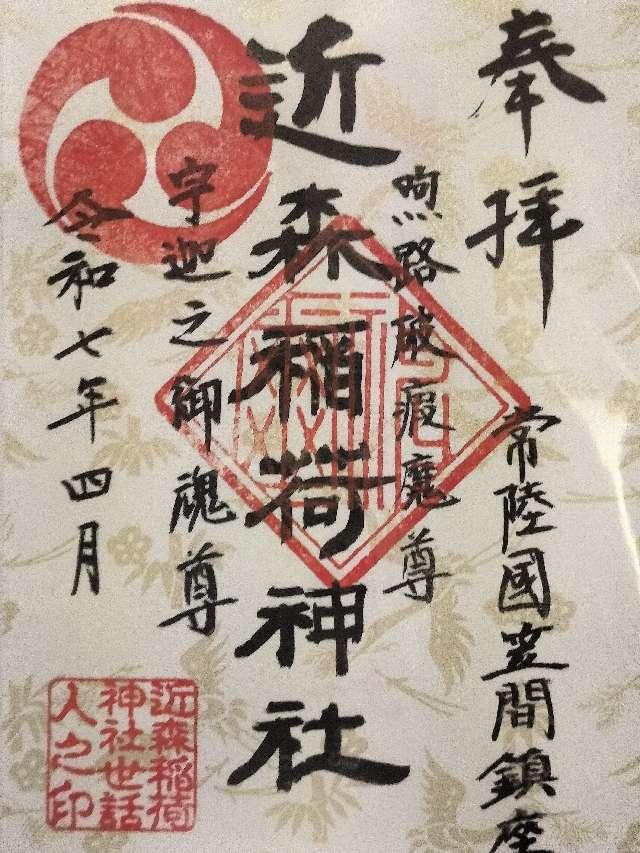 奉拝
常陸國笠間鎮座
呴路破瘕魔尊
近森稲荷神社
宇迦之御魂尊
令和七年四月
近森稲荷
神社世話
人之印